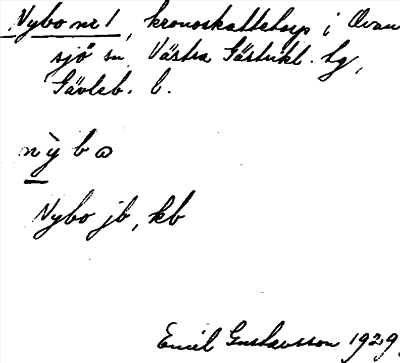 Nybo nr 1, kronoskattetorp i Ovan
sjö sn Västra Gästrikl. tg,
Gävleb. l.
nỳbω
Nybo jb, kb
Emil Gustavsson 1929.